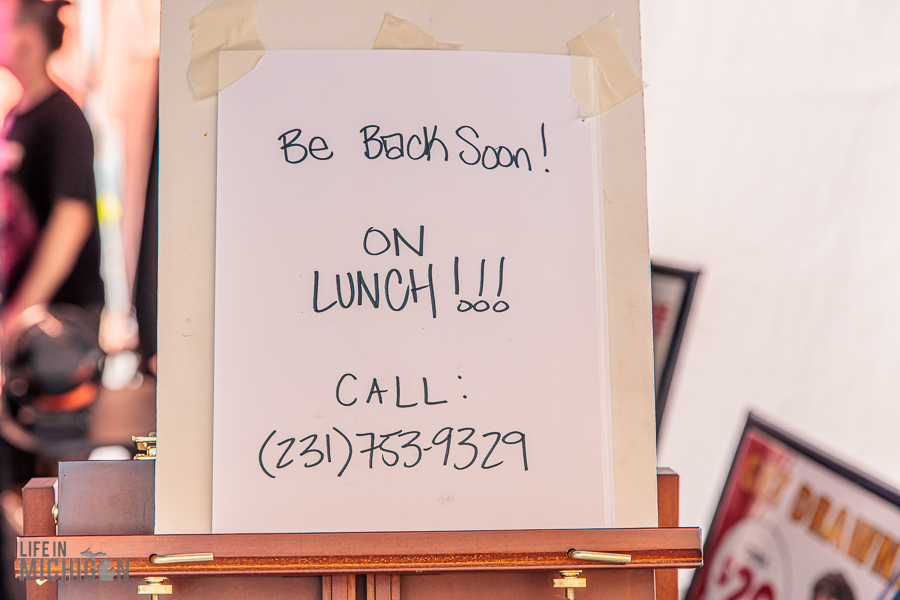 Be Back Soon!
ON
LUNCH!!!
CALL:
(231)753-9329
LIFE IN
MICHIGAN